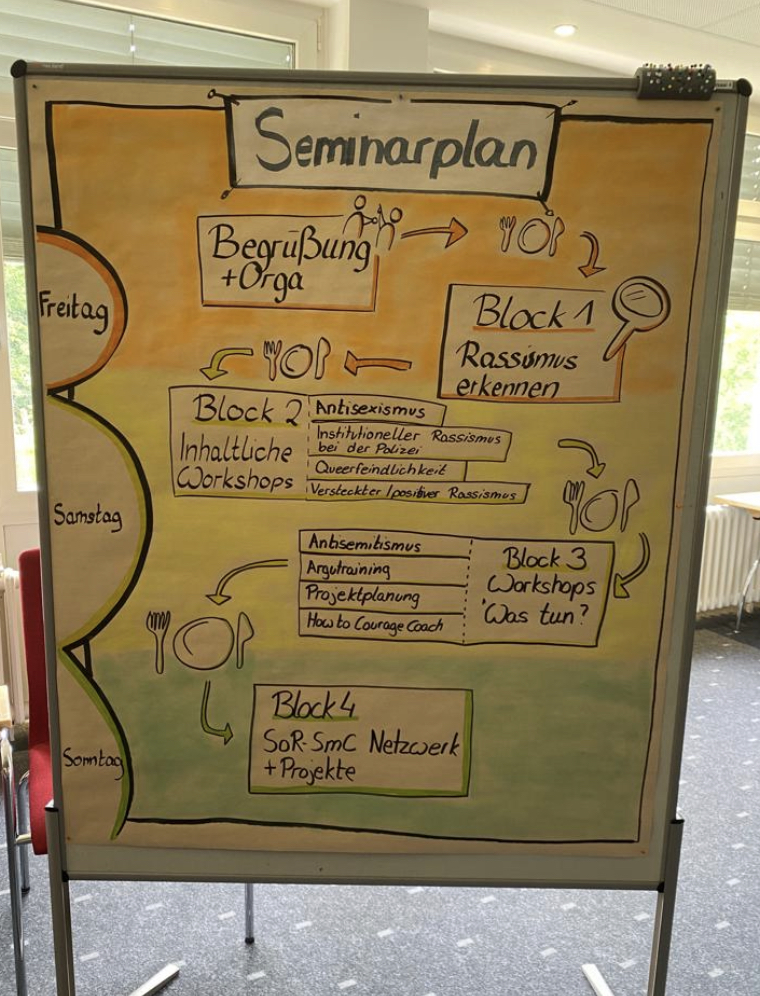 Seminarplan
Begrüßung
+Orga
Freitag
Block 1
Rassismus
erkennen
Block 2
Inhaltliche
Workshops
Antisexismus
Institutioneller Rassismus
bei der Polizei
Queerfeindlichkeit
Versteckter/positiver Rassismus
Samstag
Block 3
Workshops
"Was tun?
Antisemitismus
Argutraining
Projektplanung
How to Courage Coach
Block 4
SoR-SmC Netzwerk
+Projekte
Sonntag